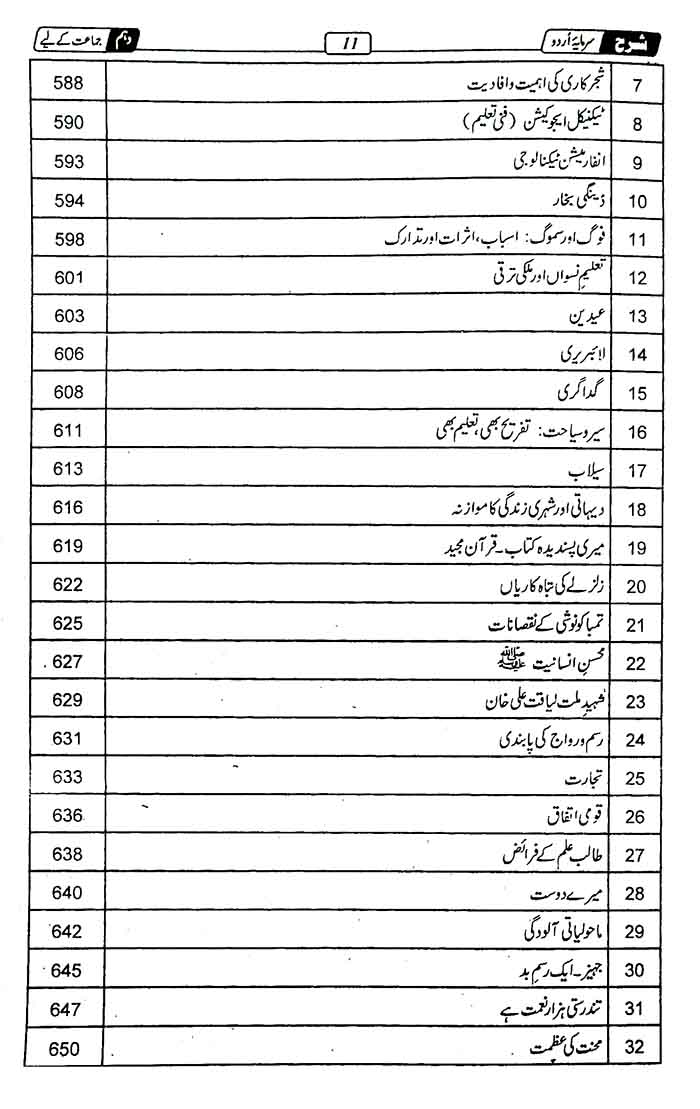 شرح سرمایۂ اُردو 11 دہم جماعت کے لیے
7 شجرکاری کی اہمیت و افادیت 588
8 ٹیکنیکل ایجوکیشن (فنی تعلیم) 590
9 انفارمیشن ٹیکنالوجی 593
10 ڈینگی بخار 594
11 فوگ اور سموگ: اسباب، اثرات اور تدارک 598
12 تعلیمِ نسواں اور ملکی ترقی 601
13 عیدین 603
14 لائبریری 606
15 گداگری 608
16 سیر و سیاحت: تفریح بھی، تعلیم بھی 611
17 سیلاب 613
18 دیہاتی اور شہری زندگی کا موازنہ 616
19 میری پسندیدہ کتاب۔قرآن مجید 619
20 زلزلے کی تباہ کاریاں 622
21 تمباکو نوشی کے نقصانات 625
22 محسنِ انسانیت ﷺ 627
23 شہیدِ ملت لیاقت علی خان 629
24 رسم و رواج کی پابندی 631
25 تجارت 633
26 قومی اتفاق 636
27 طالب علم کے فرائض 638
28 میرے دوست 640
29 ماحولیاتی آلودگی 642
30 جہیز۔ایک رسمِ بد 645
31 تندرستی ہزار نعمت ہے 647
32 محنت کی عظمت 650